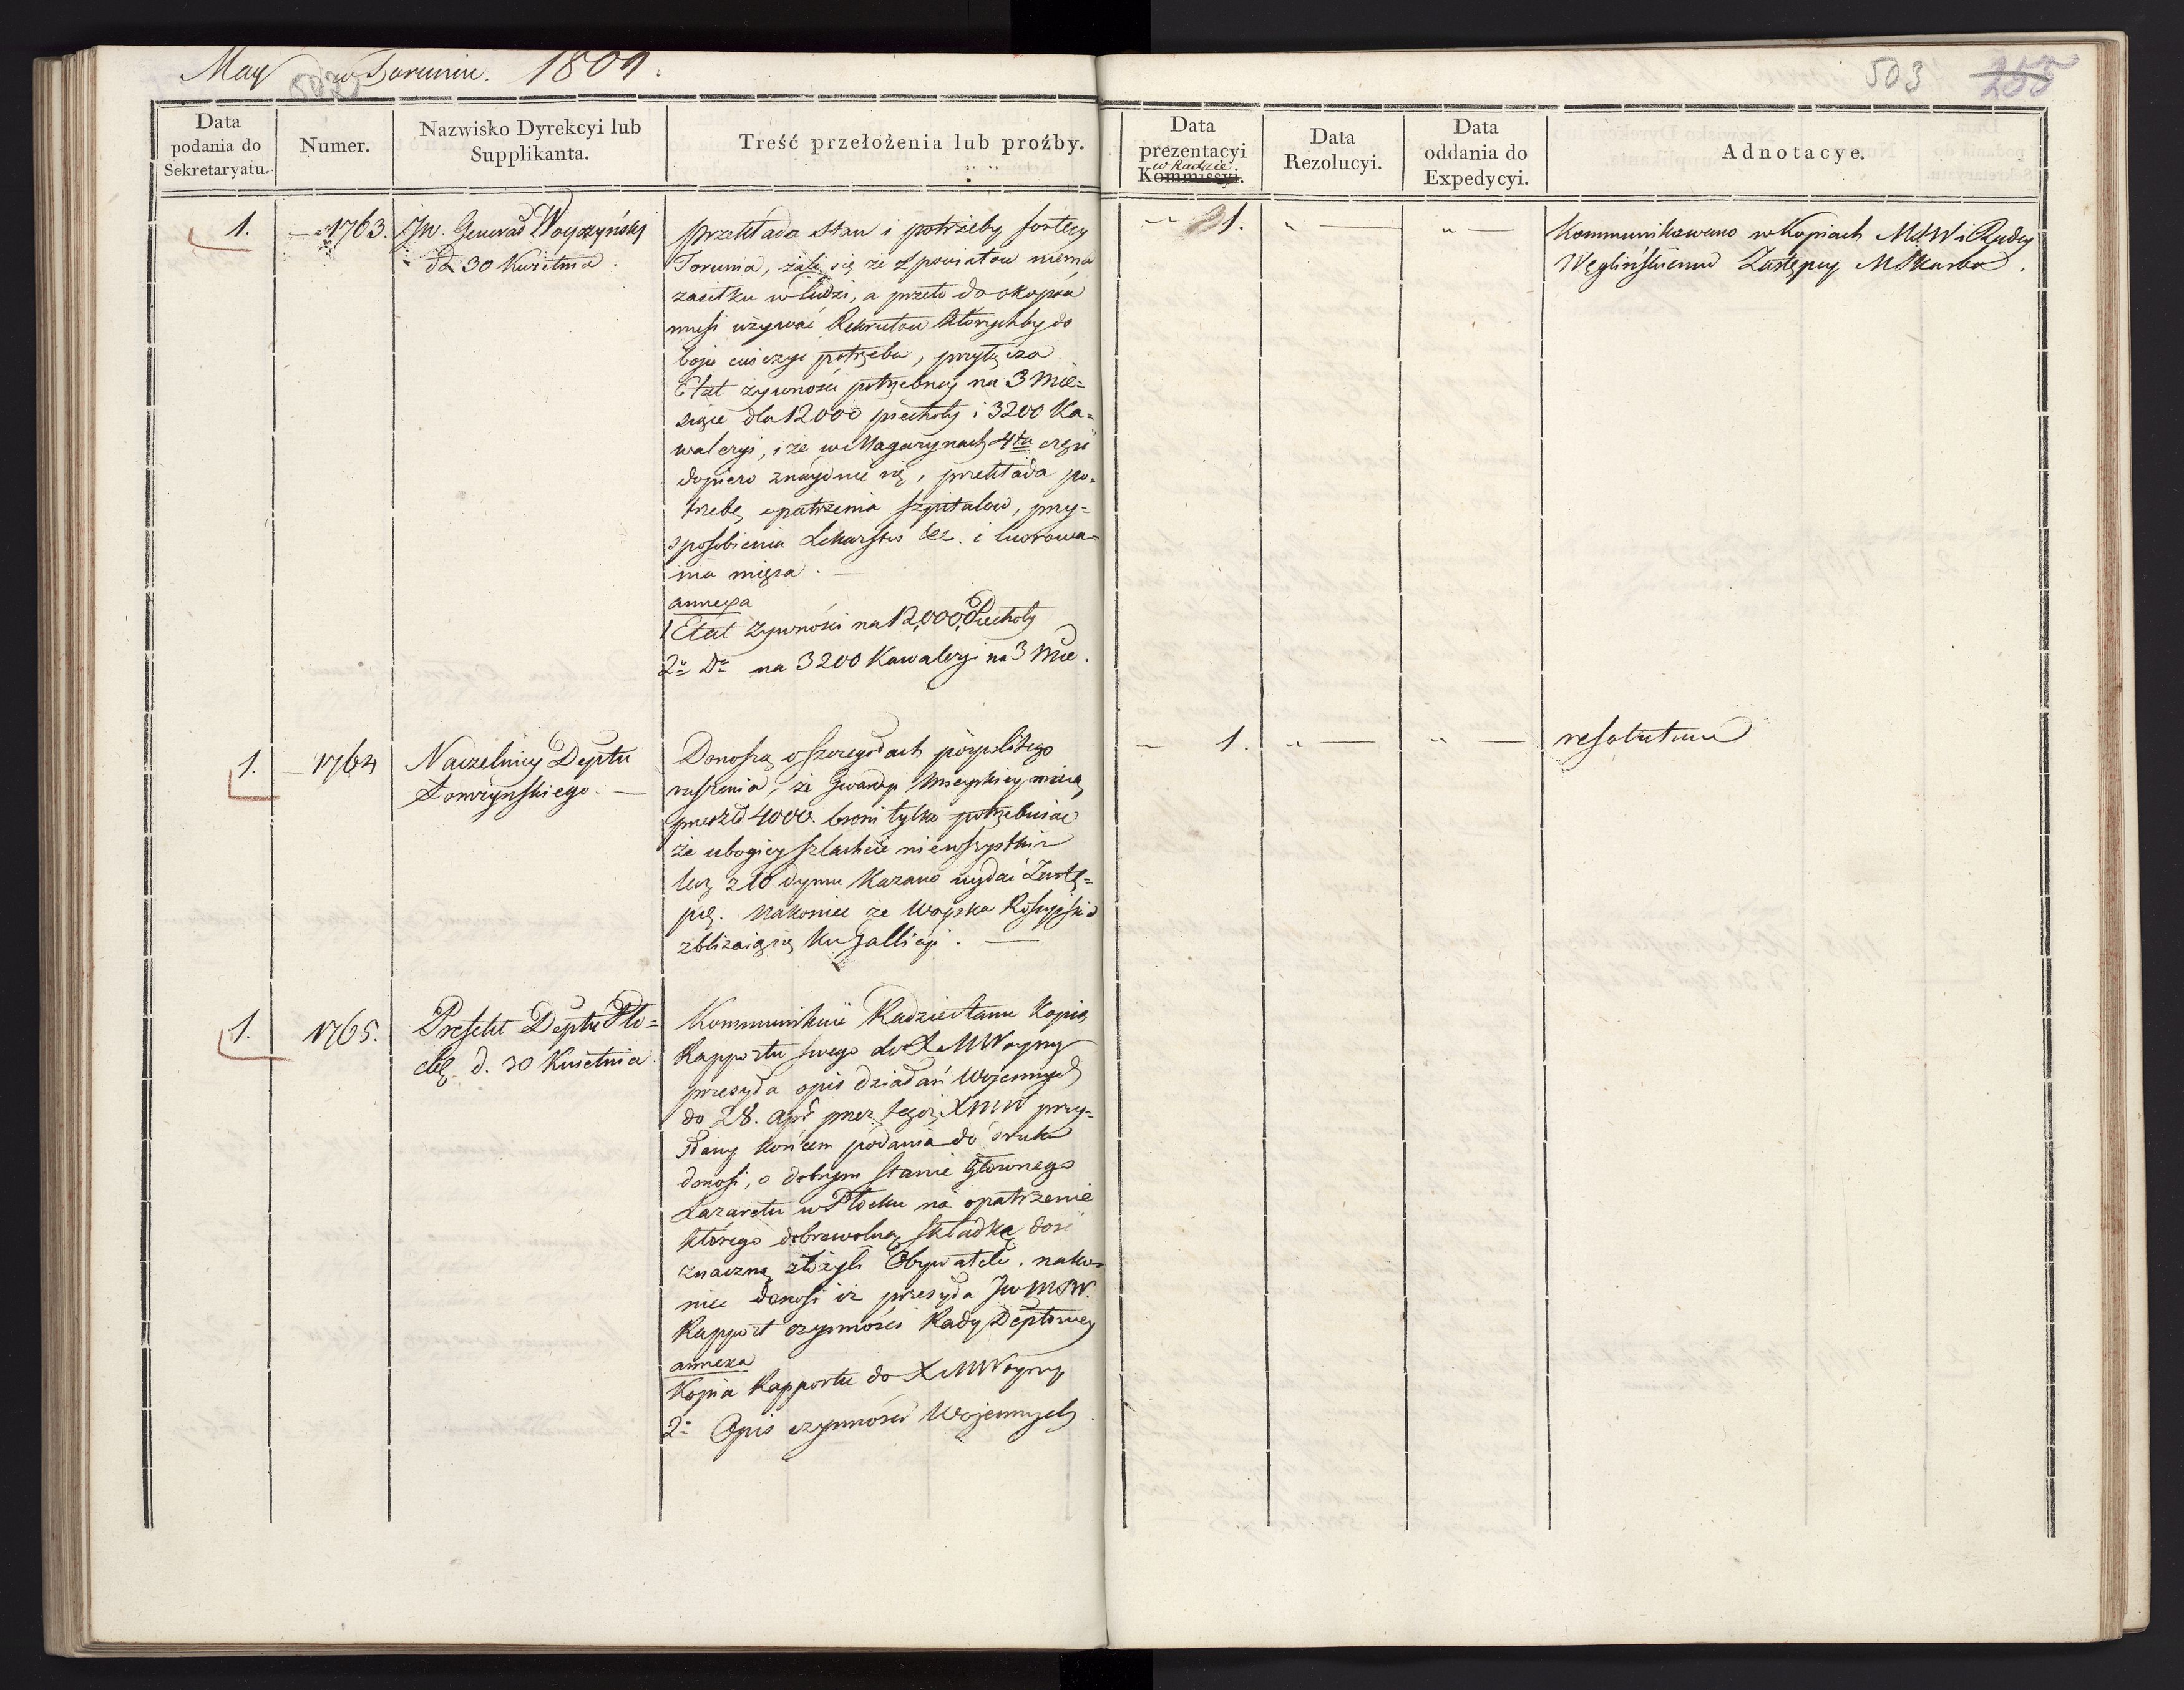 May w Toruniu. 1809.
503 255
Data podania do Sekretaryatu.
Numer.
Nazwisko Dyrekcyi lub Supplikanta.
Treść przełożenia lub proźby.
Data prezentacyi w Radzie Kommissyi.
Data Rezolucyi.
Data oddania do Expedycyi.
Adnotacye.
1.
1763.
JW. Generał Woyczyński
d. 30 Kwietnia.
przekłada stan i potrzeby fortecy
Torunia, żali się że z powiatow niema
zasiłku w ludzi, a przeto do okopów
musi używać Rekrutow którychby do
boju ćwiczyć potrzeba, przyłącza
Etat żywności potrzebney na 3 Mie=
siące dla 12000 piechoty i 3200 Ka=
waleryi, i że w Magazynach 4ta część
dopiero znayduie się, przekłada po=
trzebę opatrzenia szpitalow, przy=
sposobienia Lekarstw &c. i
mięsa. —
annexa
1 Etat żywności na 12,000 Piechoty
2o Do na 3200 Kawaleryi na 3 Mie.
1.
Kommunikowano w Kopiach MSW i Radcy
Węglińskiemu Zastępcy MSkarbu.
1.
1764
Naczelnicy Deptu
Łomżyńskiego. —
Donoszą o szczegołach pospolitego
ruszenia, że Gwardyi Mieyskiey maią
przeszło 4000. broni tylko potrzebuiąc
że ubogiey szlachcie nie wszystkim
lecz z 10 dymu kazano wydać Zastę=
pcę. Nakoniec że Woyska Rossyiskie
zbliżaią się ku Gallicyi. —
1.
resolutum
1.
1765.
Prefekt Deptu Pło=
ckgo d. 30 Kwietnia.
Kommunikuie Radzie Stanu Kopią
Rapportu swego do X MWoyny
przesyła opis działań Wojennych
do 28. Apr przez tegoż XMW przy=
słany końcem podania do druku
donosi, o dobrym stanie Głównego
Lazaretu w Płocku na opatrzenie
którego dobrowolną składkę dość
znaczną złożyli Obywatele. nako=
niec donosi iż przesyła JW MSW.
Rapport czynności Rady Deptowey
annexa
Kopia Rapportu do X MWoyny
2o Opis czynności Wojennych